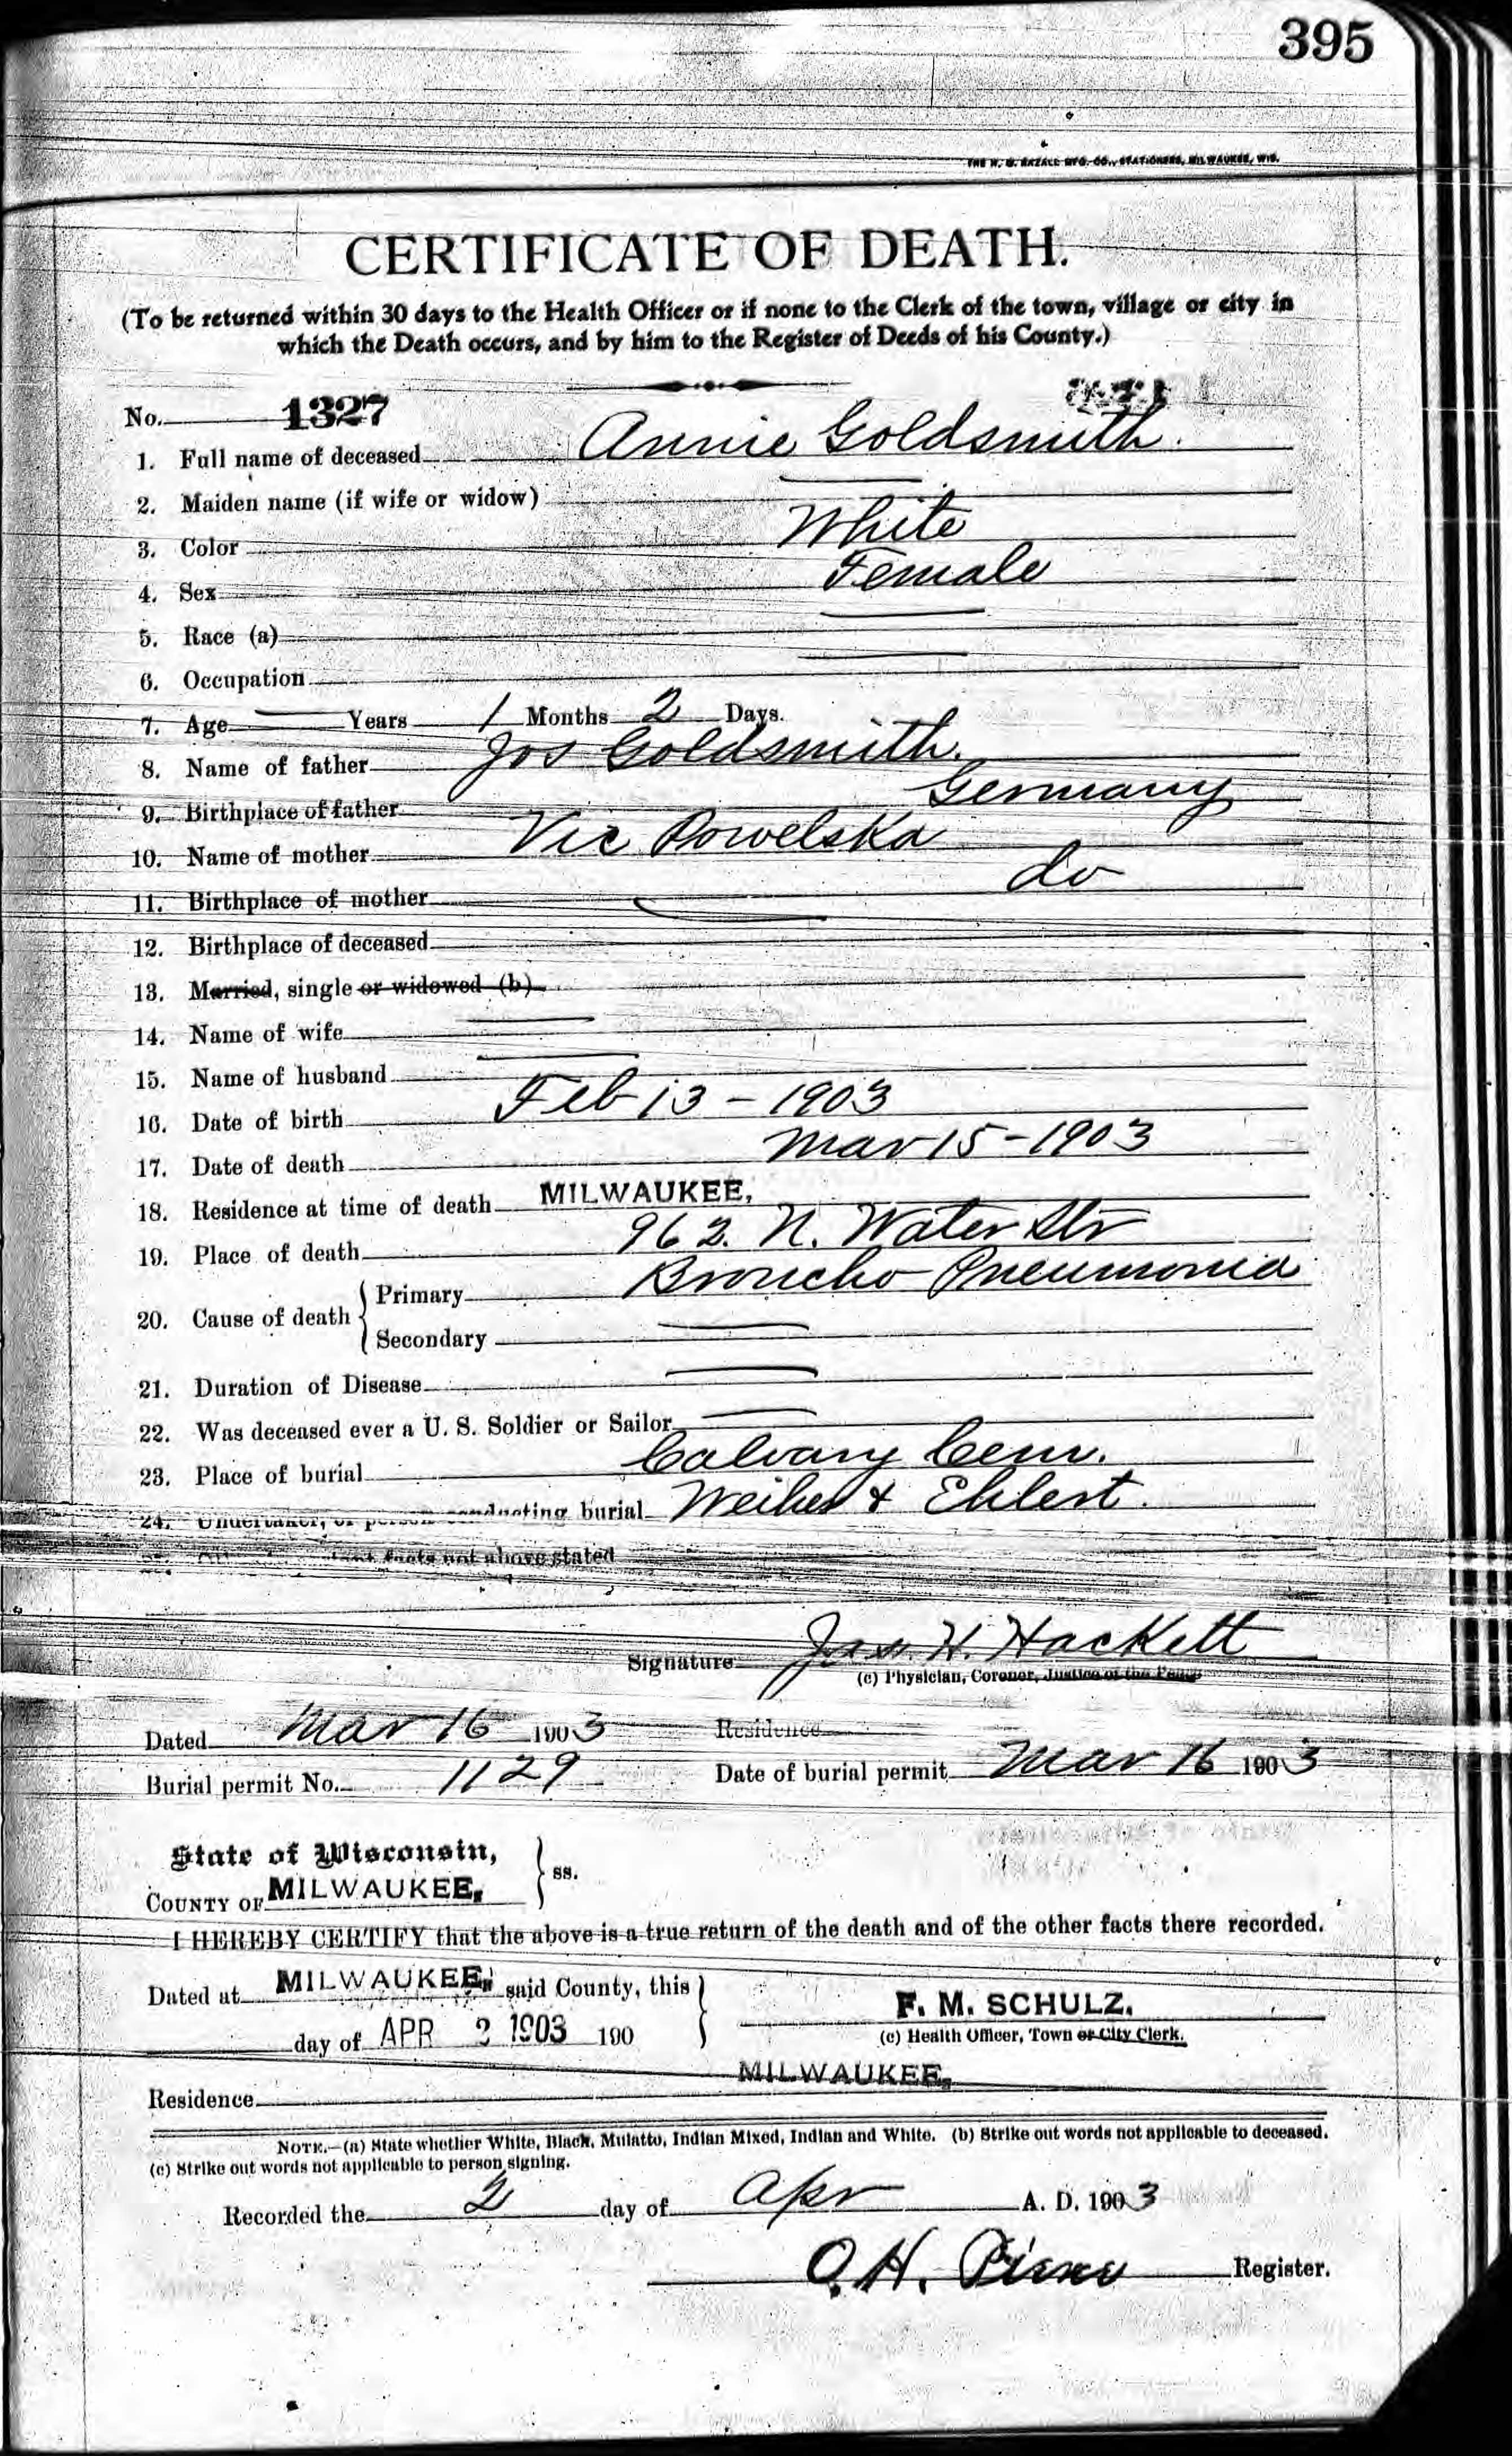 395
THE H. G. RAZALL MFG. CO., STATIONERS, MILWAUKEE, WIS.
CERTIFICATE OF DEATH.
(To be returned within 30 days to the Health Officer or if none to the Clerk of the town, village or city in
which the Death occurs, and by him to the Register of Deeds of his County.)
No. 1327
1. Full name of deceased Annie Goldsmith.
2. Maiden name (if wife or widow)
3. Color White
4. Sex Female
5. Race (a)
6. Occupation
7. Age Years 1 Months 2 Days.
8. Name of father Jos Goldsmith.
9. Birthplace of father Germany
10. Name of mother Vic Powelska
11. Birthplace of mother do
12. Birthplace of deceased
13. Married, single or widowed (b)
14. Name of wife
15. Name of husband
16. Date of birth Feb 13 - 1903
17. Date of death Mar 15 - 1903
18. Residence at time of death MILWAUKEE,
19. Place of death 962. N. Water Str
20. Cause of death Primary Broncho Pneumonia
Secondary
21. Duration of Disease
22. Was deceased ever a U. S. Soldier or Sailor
23. Place of burial Calvary Cem.
24. Undertaker, or person conducting burial Weiher & Ehlert.
facts not above stated
Signature Jas. H. Hackett
(c) Physician, Coroner, Justice of the Peace
Dated Mar 16 1903 Residence
Burial permit No. 1129 Date of burial permit Mar 16 1903
State of Wisconsin,
COUNTY OF MILWAUKEE, ss.
I HEREBY CERTIFY that the above is a true return of the death and of the other facts there recorded.
Dated at MILWAUKEE, said County, this
day of APR 2 1903 190
F. M. SCHULZ.
(c) Health Officer, Town or City Clerk.
Residence MILWAUKEE,
NOTE.—(a) State whether White, Black, Mulatto, Indian Mixed, Indian and White. (b) Strike out words not applicable to deceased.
(c) Strike out words not applicable to person signing.
Recorded the 2 day of Apr A. D. 1903
O. H. Register.